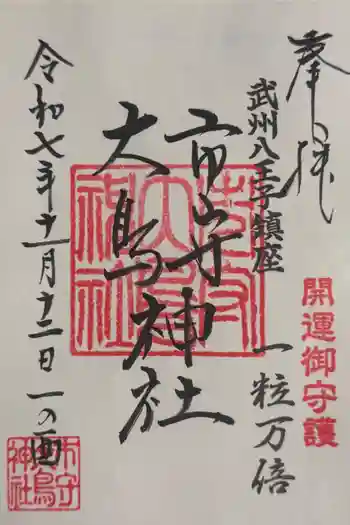 奉拝
開運御守護
武州八王子鎮座
一粒万倍
市守
大鳥
神社
令和七年十一月十二日 一の酉
市守
大鳥
神社